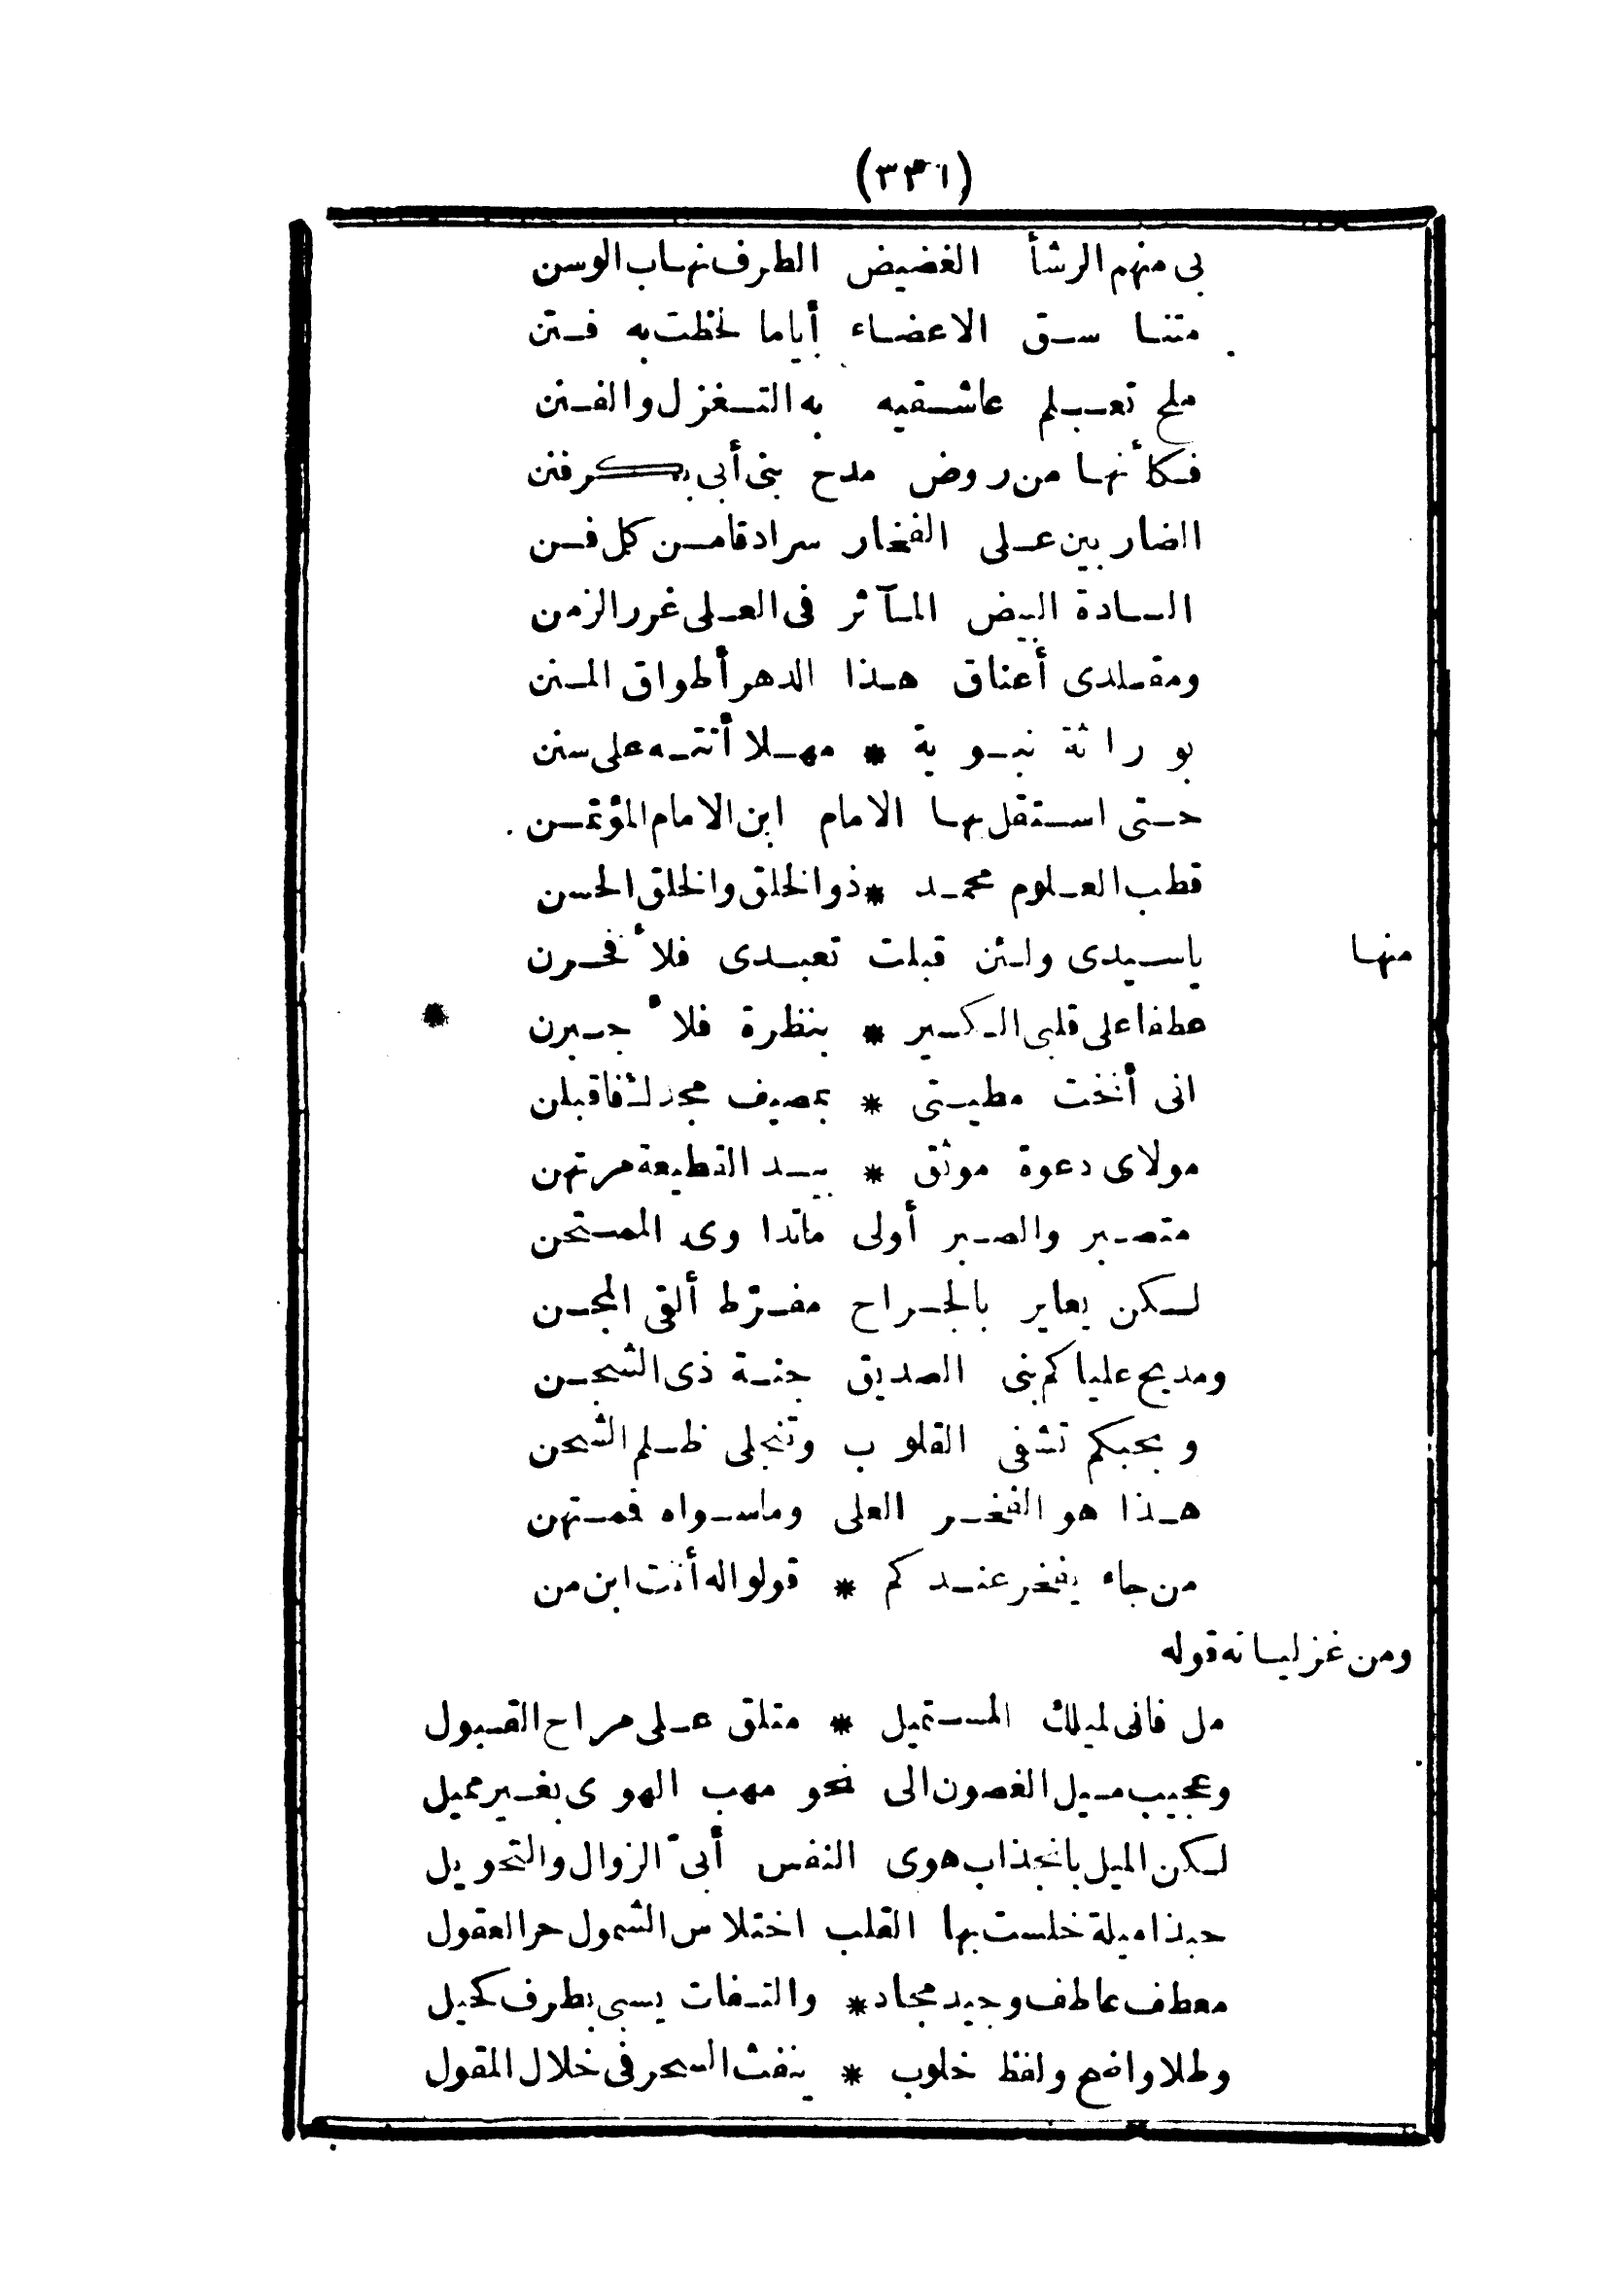 (٣٣١)
بى منهم الرشأ الغضيض الطرف نهاب الوسن
متناسق الاعضاء أياما لحظت به فتن
ملح تعلم عاشقيه به التغزل والفنن
فكأنها من روض مدح بنى أبى بكر فنن
الضاربين على الفخار سرادقا من كل فن
السادة البيض المآثر فى العلى غرر الزمن
ومقلدى أعناق هذا الدهر أطواق المنن
بوراثة نبوية * مهلا أتته على سنن
حتى استقل بها الامام ابن الامام المؤتمن
قطب العلوم محمد * ذو الخلق والخلق الحسن
منها يا سيدى ولئن قبلت تعبدى فلأفخرن
عطفا على قلبى الكسير * بنظرة فلأجبرن
انى أنخت مطيتى * بمصيف مجدك فاقبلن
مولاى دعوة موثق * بيد القطيعة مرتهن
متصبر والصبر أولى ماتداوى الممتحن
لكن يعاير بالجراح مفرّط ألقى المجن
ومديح علياكم بنى الصديق جنة ذى الشجن
وبحبكم تشفى القلوب وتنجلى ظلم الشحن
هذا هو الفخر العلى وماسواه فمتهن
من جاء يفخر عندكم * قولوا له أنت ابن من
ومن غزلياته قوله
مل فانى لميلك المستميل * متلق على مراح القبول
وعجيب ميل الغصون الى نحو مهب الهوى بغير مميل
لكن الميل بانجذاب هوى النفس أبىّ الزوال والتحويل
حبذا ميلة خلست بها القلب اختلاس الشمول حر العقول
معطف عاطف وجيد مجاد * والتفات يسبى بطرف كحيل
وطلا واضح ولفظ خلوب * ينفث السحر فى خلال المقول